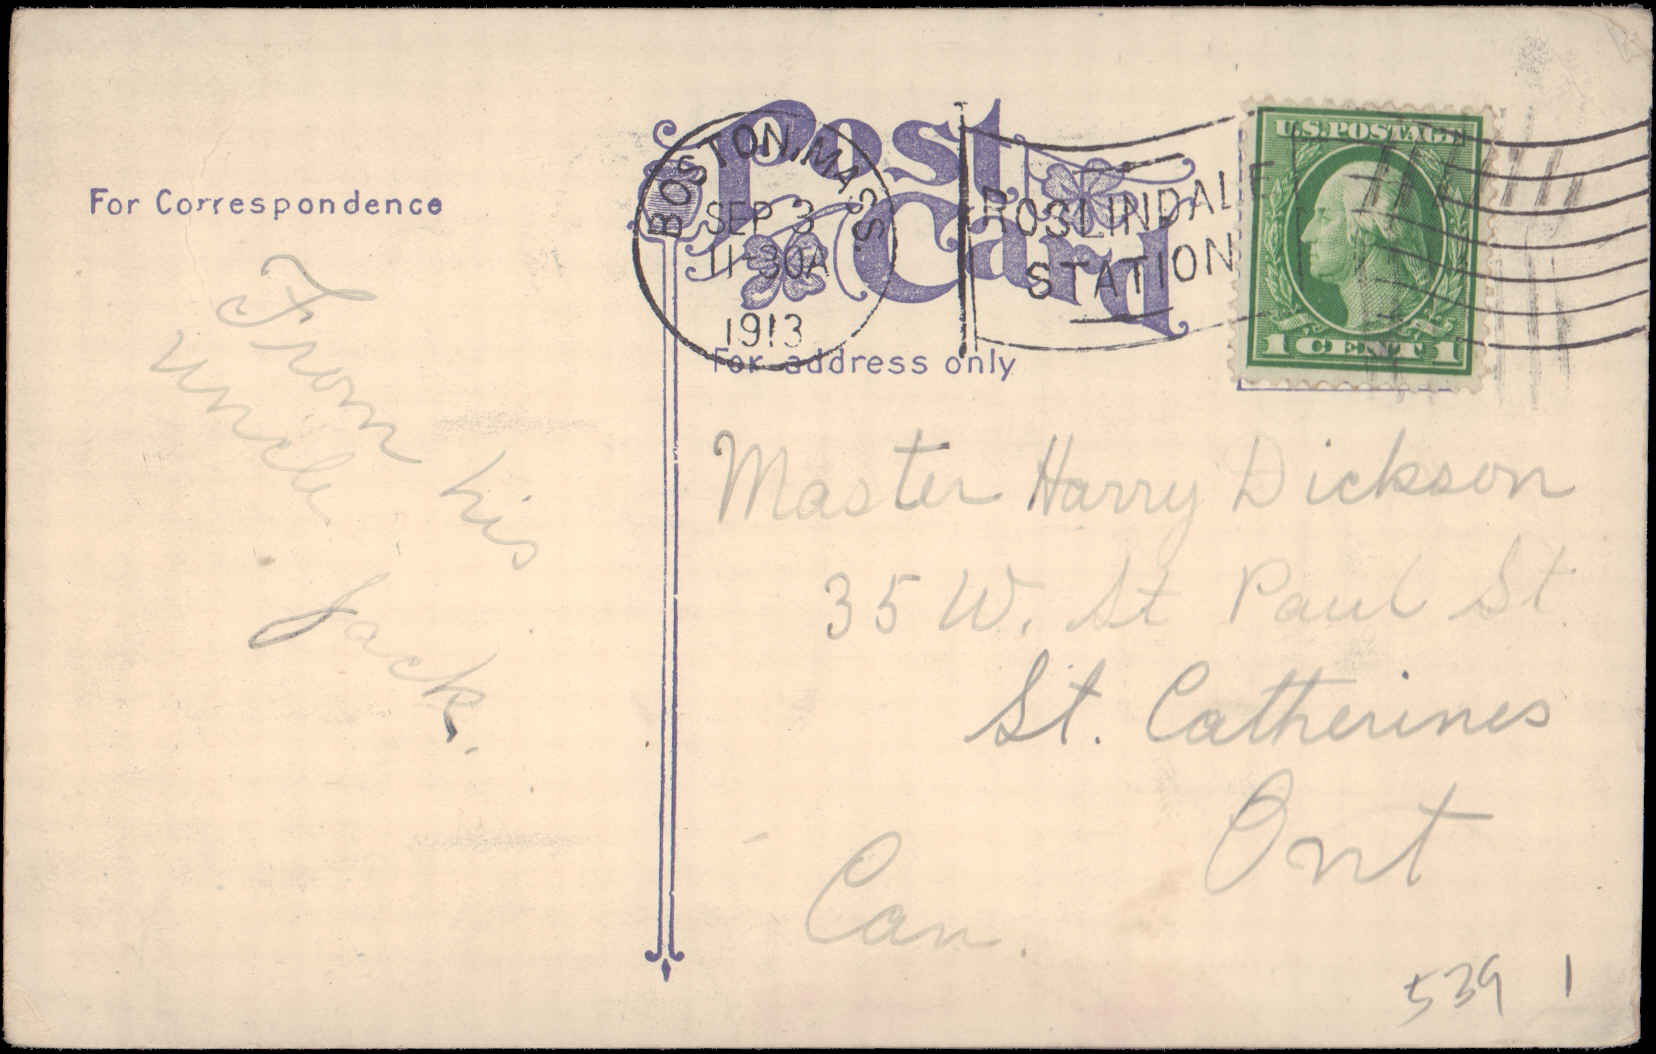 For Correspondence
From his
uncle
Jack.
Post
Card
BOSTON, MASS.
SEP 3
11-30A
1913
ROSLINDALE
STATION
U.S. POSTAGE
1 CENT 1
For address only
Master Harry Dickson
35 W. St Paul St
St. Catherines
Ont
Can.
539 1